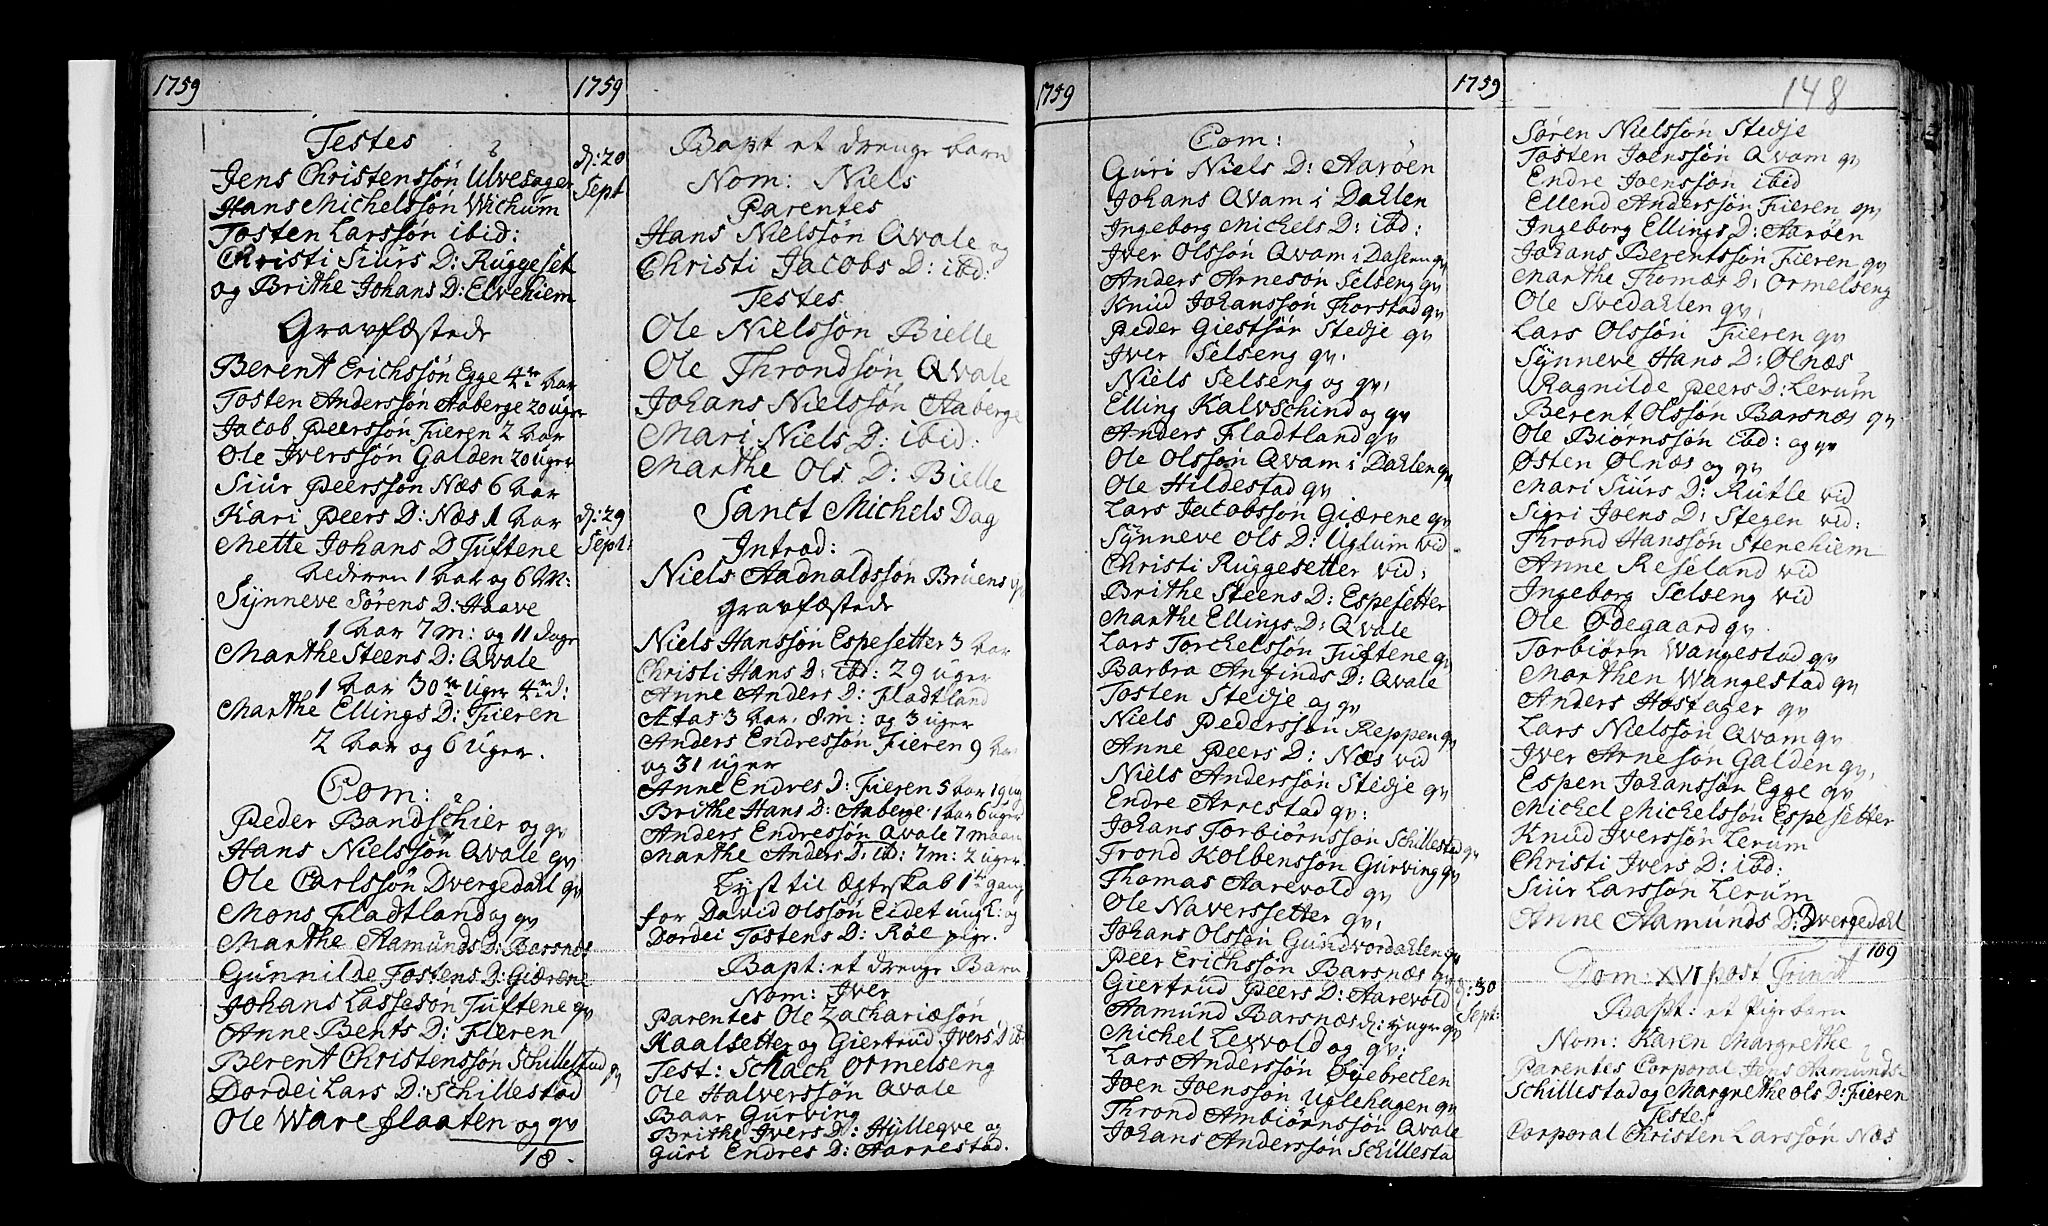 1759
Testes
Jens Christenssøn Ulvesager
Hans Michelssøn Wichum
Tosten Larssøn ibid:
Christi Siurs D: Ruggeset
og Brithe Johans D: Elvehiem
Gravfæstede
Berent Erichssøn Egge 4 aar
Tosten Anderssøn Aaberge 20 uger
Jacob Peerssøn Fieren 2 aar
Ole Iverssøn Galden 20 uger
Siur Peerssøn Næs 6 aar
Kari Peers D: Næs 1 aar
Mette Johans D Tuftene
1 aar og 6 M:
Synneve Sørens D: Haave
1 aar 7 m: og 11 dage
Marthe Steens D: Qvale
1 aar 30 uger 4 d:
Marthe Ellings D: Fieren
2 aar og 6 uger.
Com:
Peder Bandschier og qv
Hans Nielssøn Qvale qv
Ole Carlssøn Dvergedahl qv
Mons Fladtland og qv
Marthe Aamunds D: Barsnæs
Gunnilde Tostens D: Giærene
Johans Lasseson Tuftene qv
Anne Bents D: Fieren
Berent Christenssøn Schillestad qv
Dordei Lars D: Schillestad
Ole Ware flaaten og qv
18.
1759
d: 20
Sept
Bapt et drenge barn
Nom: Niels
Parentes
Hans Nielssøn Qvale og
Christi Jacobs D: ibd:
Testes
Ole Nielssøn Bielle
Ole Throndsøn Qvale
Johans Nielssøn Aaberge
Mari Niels D: ibid:
Marthe Ols D: Bielle
d: 29
Sept:
Sanct Michels Dag
Introd:
Niels Aadnaldssøn Bruens
gravfæstede
Niels Hanssøn Espesetter 3 aar
Christi Hans D: ibd: 29 uger
Anne Anders D: Fladtland
Ætas 3 aar. 8 m: og 3 uger
Anders Endressøn Fieren 9 aar
og 31 uger
Anne Endres D: Fieren 5 aar 19 ug
Brithe Hans D: Aaberge 1 aar 6 uger
Anders Endressøn Qvale 7 maan
Marthe Anders D: ibd: 7 m: 2 uger.
Lyst til Ægteskab 1 gang
for David Olssøn Eidet ung k: og
Dordei Tostens D: Røe pige.
Bapt: et drenge Barn
Nom: Iver
Parentes Ole Zachariæsøn
Haalsetter og Giertrud Ivers D ibd
Test: Schach Ormelseng
Ole Halverssøn Qvale
Baar Gurving
Brithe Ivers D: Hyllegve og
Guri Endres D: Aarrestad.
1759
Com:
Guri Niels D: Aarøen
Johans Qvam i Dahlen
Ingeborg Michels D: ibd:
Iver Olssøn Qvam i Dalen qv
Anders Arnesøn Selseng qv
Knud Johanssøn Thorstad qv
Peder Giestsøn Stedje qv
Iver Selseng qv:
Niels Selseng og qv:
Elling Kalvschind og qv
Anders Fladtland qv
Ole Olssøn Qvam i Dahlen qv
Ole Hildestad qv
Lars Jacobssøn Giærene qv
Synneve Ols D: Uglum vid
Christi Ruggesetter vid:
Brithe Steens D: Espesetter
Marthe Ellings D: Qvale
Lars Torchelssøn Tuftene qv
Barbra Anfinds D: Qvale
Tosten Stedje og qv
Niels Pederssøn Reppen qv
Anne Peers D: Næs vid
Niels Anderssøn Stedje qv
Endre Arrestad qv:
Johans Torbiørnssøn Schillestad qv
Trond Kolbenssøn Gurving qv
Thomas Aarevold qv
Ole Naverssetter qv:
Johans Olssøn Gundvordahlen qv
Peer Erichssøn Barsnæs qv
Giertrud Peers D: Aarevold
Aamund Barsnæs d: yngre qv
Michel Levvold og qv:
Lars Anderssøn Øyebrechen
Joen Joenssøn Uglehagen qv
Thrond Ambiørnssøn Qvale
Johans Anderssøn Schillestad
1759
148
Søren Nielssøn Stedje
Tosten Joenssøn Qvam qv
Endre Joenssøn ibid
Ellend Anderssøn Fieren qv
Ingeborg Ellings D: Aarøen
Johans Berentssøn Fieren qv
Marthe Thomæs D: Ormelseng
Ole Svedahlen qv:
Lars Olssøn Fieren qv
Synneve Hans D: Ølnæs
Ragnilde Peers D: Lerum
Berent Olssøn Barsnæs qv
Ole Biørnssøn ibd: og qv
Østen Ølnæs og qv
Mari Siurs D: Rutle vid
Sigri Joens D: Stegen vid:
Thrond Hanssøn Stenehiem
Anne Reseland vid
Ingeborg Selseng vid
Ole Ødegaard qv
Torbiørn Wangestad qv
Marthen Wangestad qv
Anders Hostager qv
Lars Nielssøn Qvam qv
Iver Arnesøn Galden qv:
Espen Johanssøn Egge qv
Michel Michelssøn Espesetter
Knud Iverssøn Lerum
Christi Ivers D: ibd:
Siur Larssøn Lerum
Anne Aamunds D: Dvergedahl
109
d: 30
Sept:
Dom: XVI post Trinit
Bapt: et Pigebarn
Nom: Karen Margrethe
Parentes Corporal Jens Aamunds
Schillestad og Margrethe Ols D: Fieren
Testes
Corporal Christen Larssøn Næs